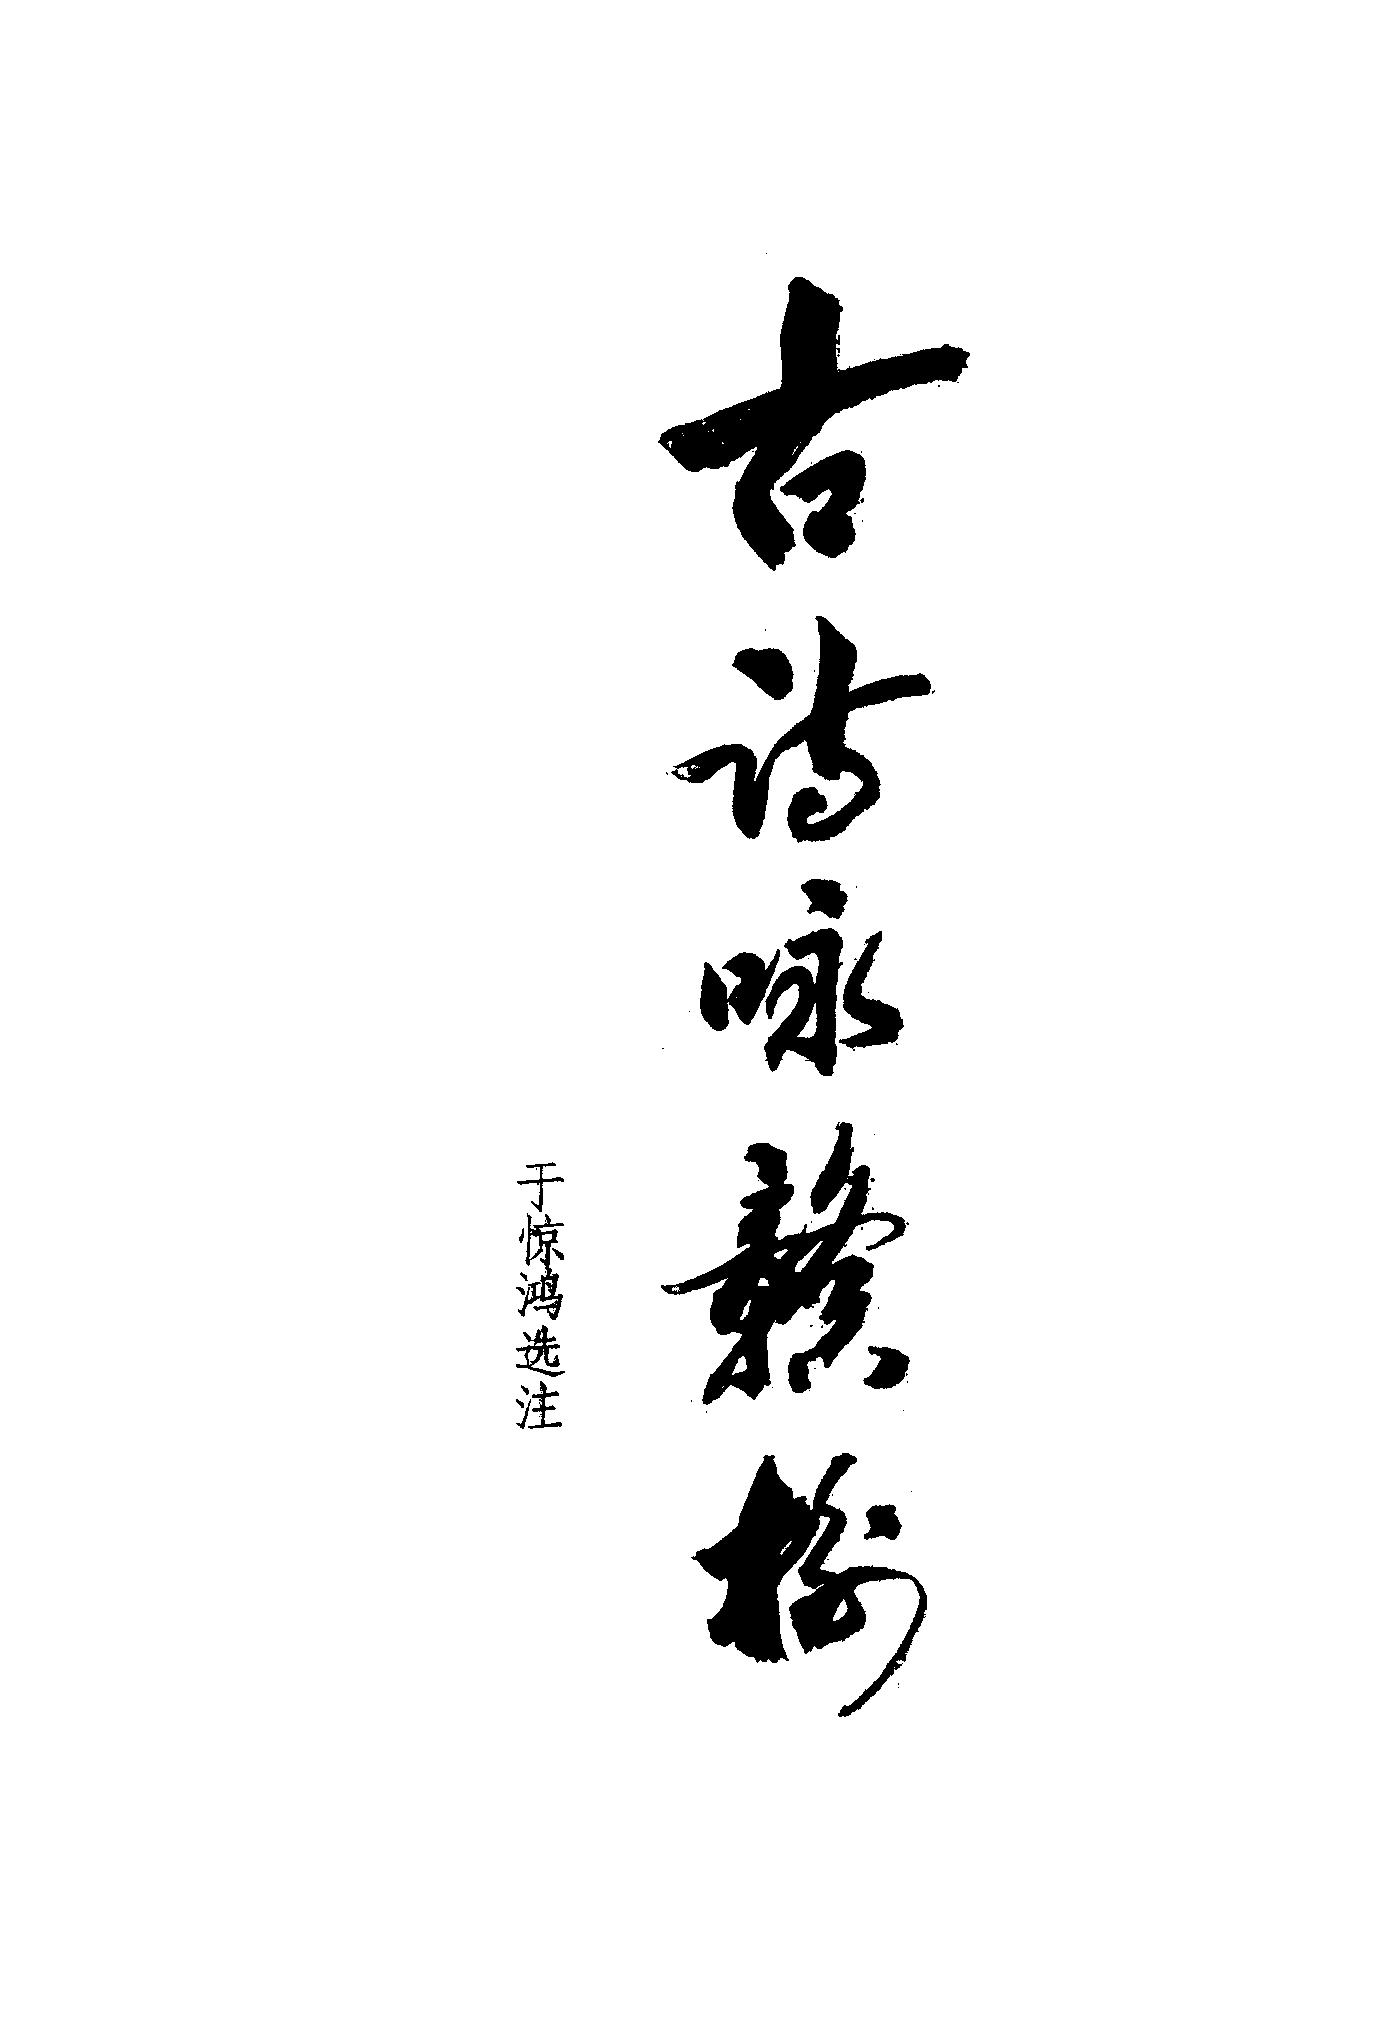 古诗咏赣榆
于惊鸿选注